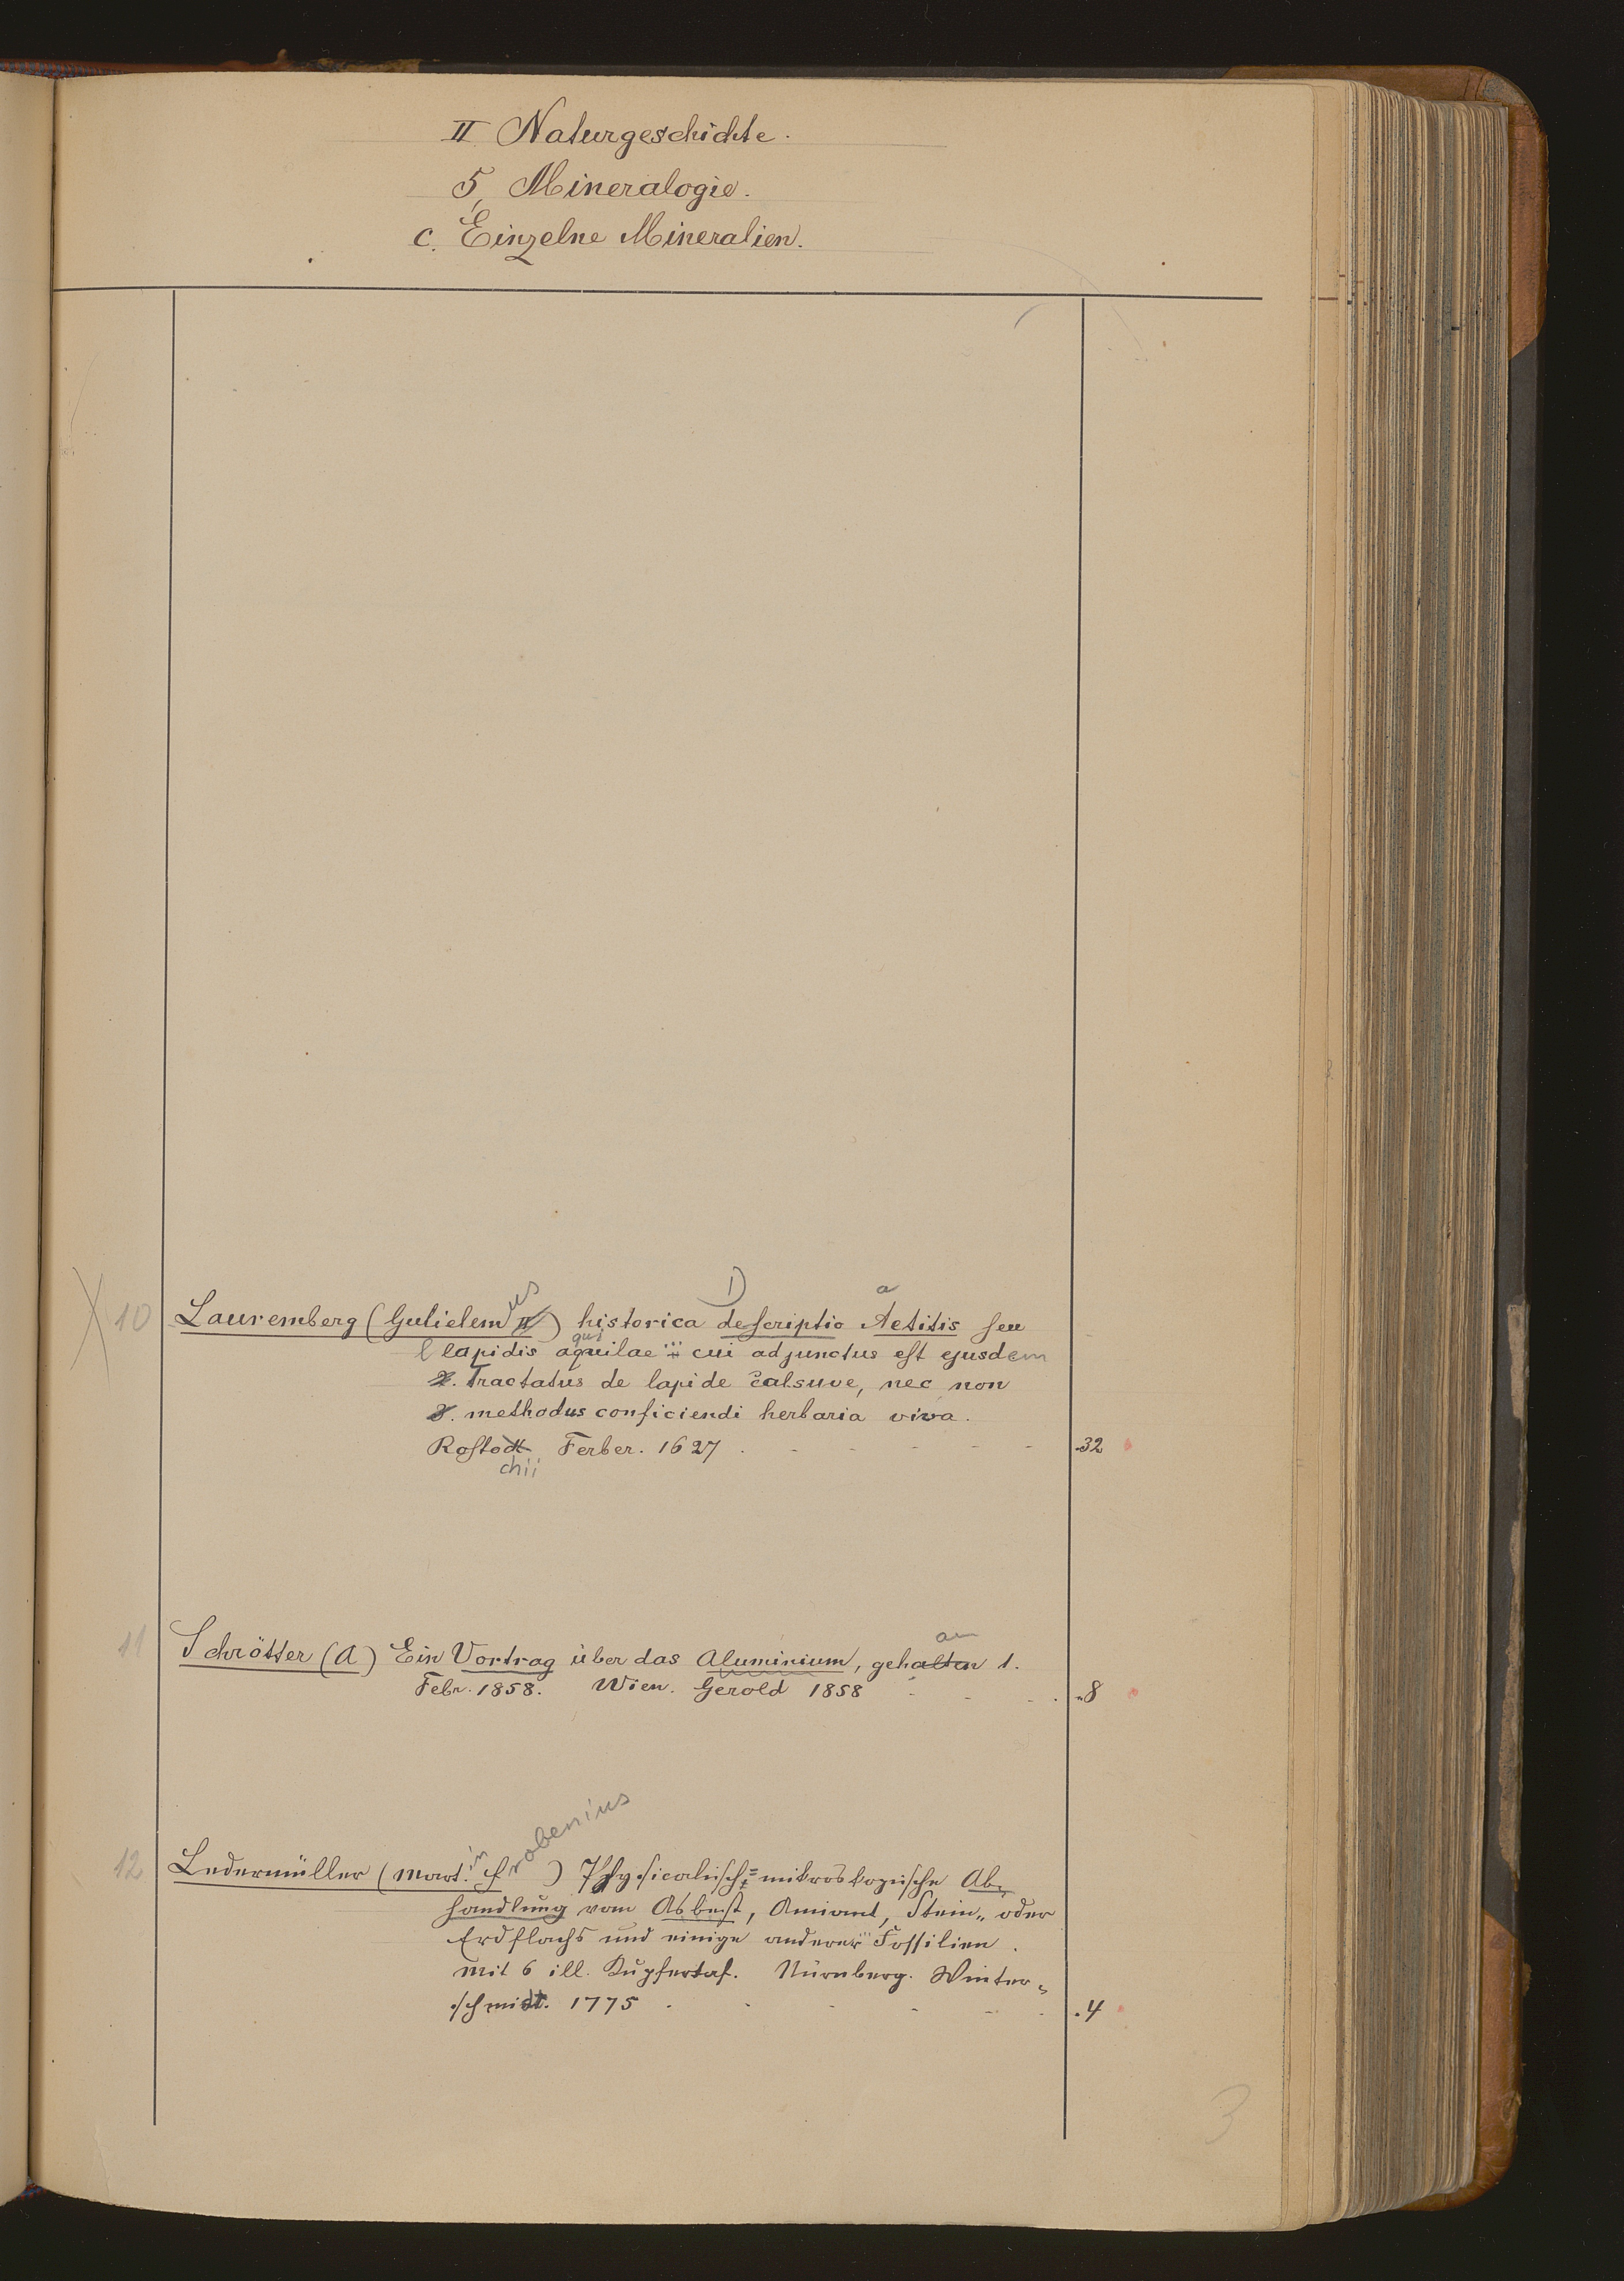 II Naturgeschichte.
5, Mineralogie.
c. Einzelne Mineralien.
10 Lauremberg (Gulielmus) historica descriptio Aetitis seu
lapidis aquilae cui adjunctus est ejusdem
Tractatus de lapide calsuve, nec non
methodus conficiendi herbaria viva.
Rostochii Ferber. 1627 32
11 Schrötter (A) Ein Vortrag über das Aluminium, geh am 1.
Febr. 1858. Wien. Gerold 1858 8
12 Ledermüller (Martin Frobenius) Physicalisch=mikroskopische Ab=
handlung vom Asbest, Amiant, Stein= oder
Erdflachs und einige anderer Fossilien.
Mit 6 ill. Kupfertaf. Nürnberg. Winter=
schmidt. 1775 4
3